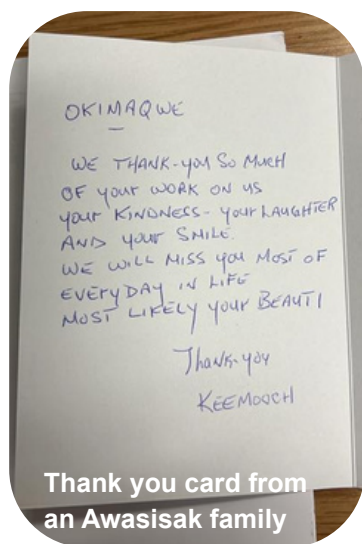 OKIMAQWE
WE THANK-YOU SO MUCH
OF YOUR WORK ON US
YOUR KINDNESS - YOUR LAUGHTER
AND YOUR SMILE.
WE WILL MISS YOU MOST OF
EVERYDAY IN LIFE
MOST LIKELY YOUR BEAUTI
Thank-you
KEEMOOCH
Thank you card from
an Awasisak family